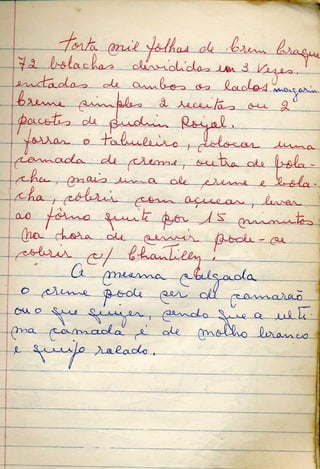 Torta mil folhas de Crem Craque
72 bolachas divididas em 3 vezes.
untadas de ambos os lados margarin
Creme simples 2 receitas ou 2
pacotes de pudim Royal.
forrar o tabuleiro, colocar uma
camada de creme, outra de bola-
cha, mais uma de creme e bola-
cha, cobrir com açucar, levar
ao forno quente por 15 minutos
na hora de servir pode-se
cobrir c/ Chantilly.
A mesma salgada
o creme pode ser de camarão
ou o que quizer, sendo que a ulti-
ma camada é de molho branco
e queijo ralado.